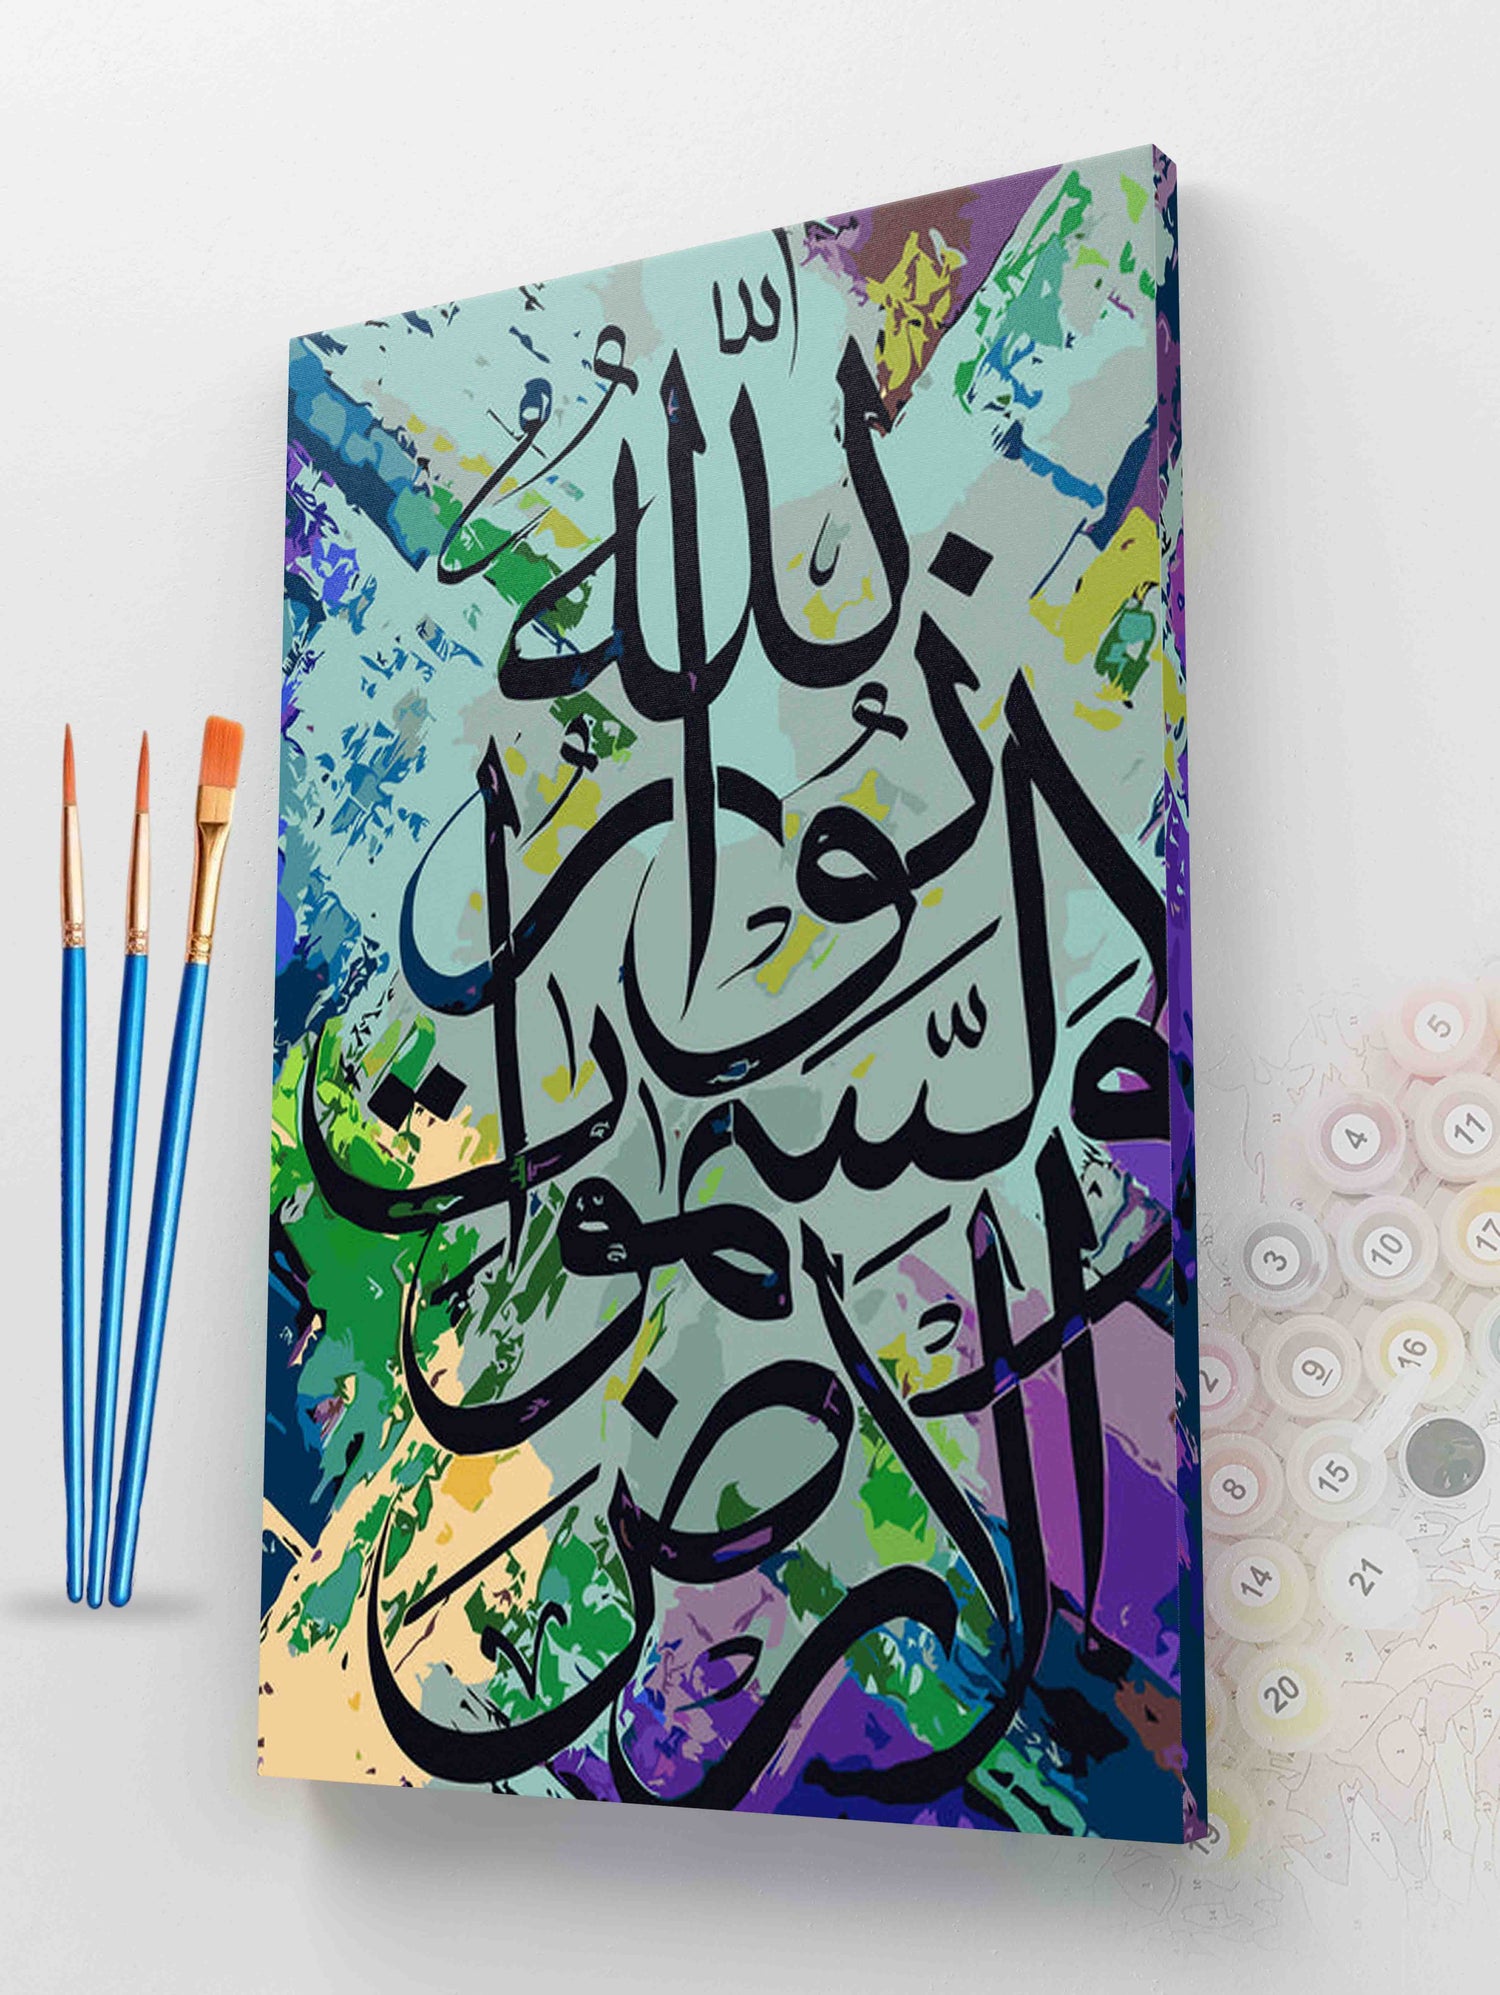 اللَّهُ
نُورُ
السَّمٰوَاتِ
وَالْأَرْضِ
5
4
11
3
10
17
2
9
16
8
15
14
21
20
19